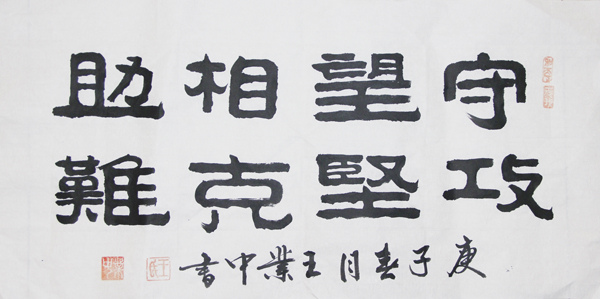 守望相助
攻堅克難
庚子春月王業中書